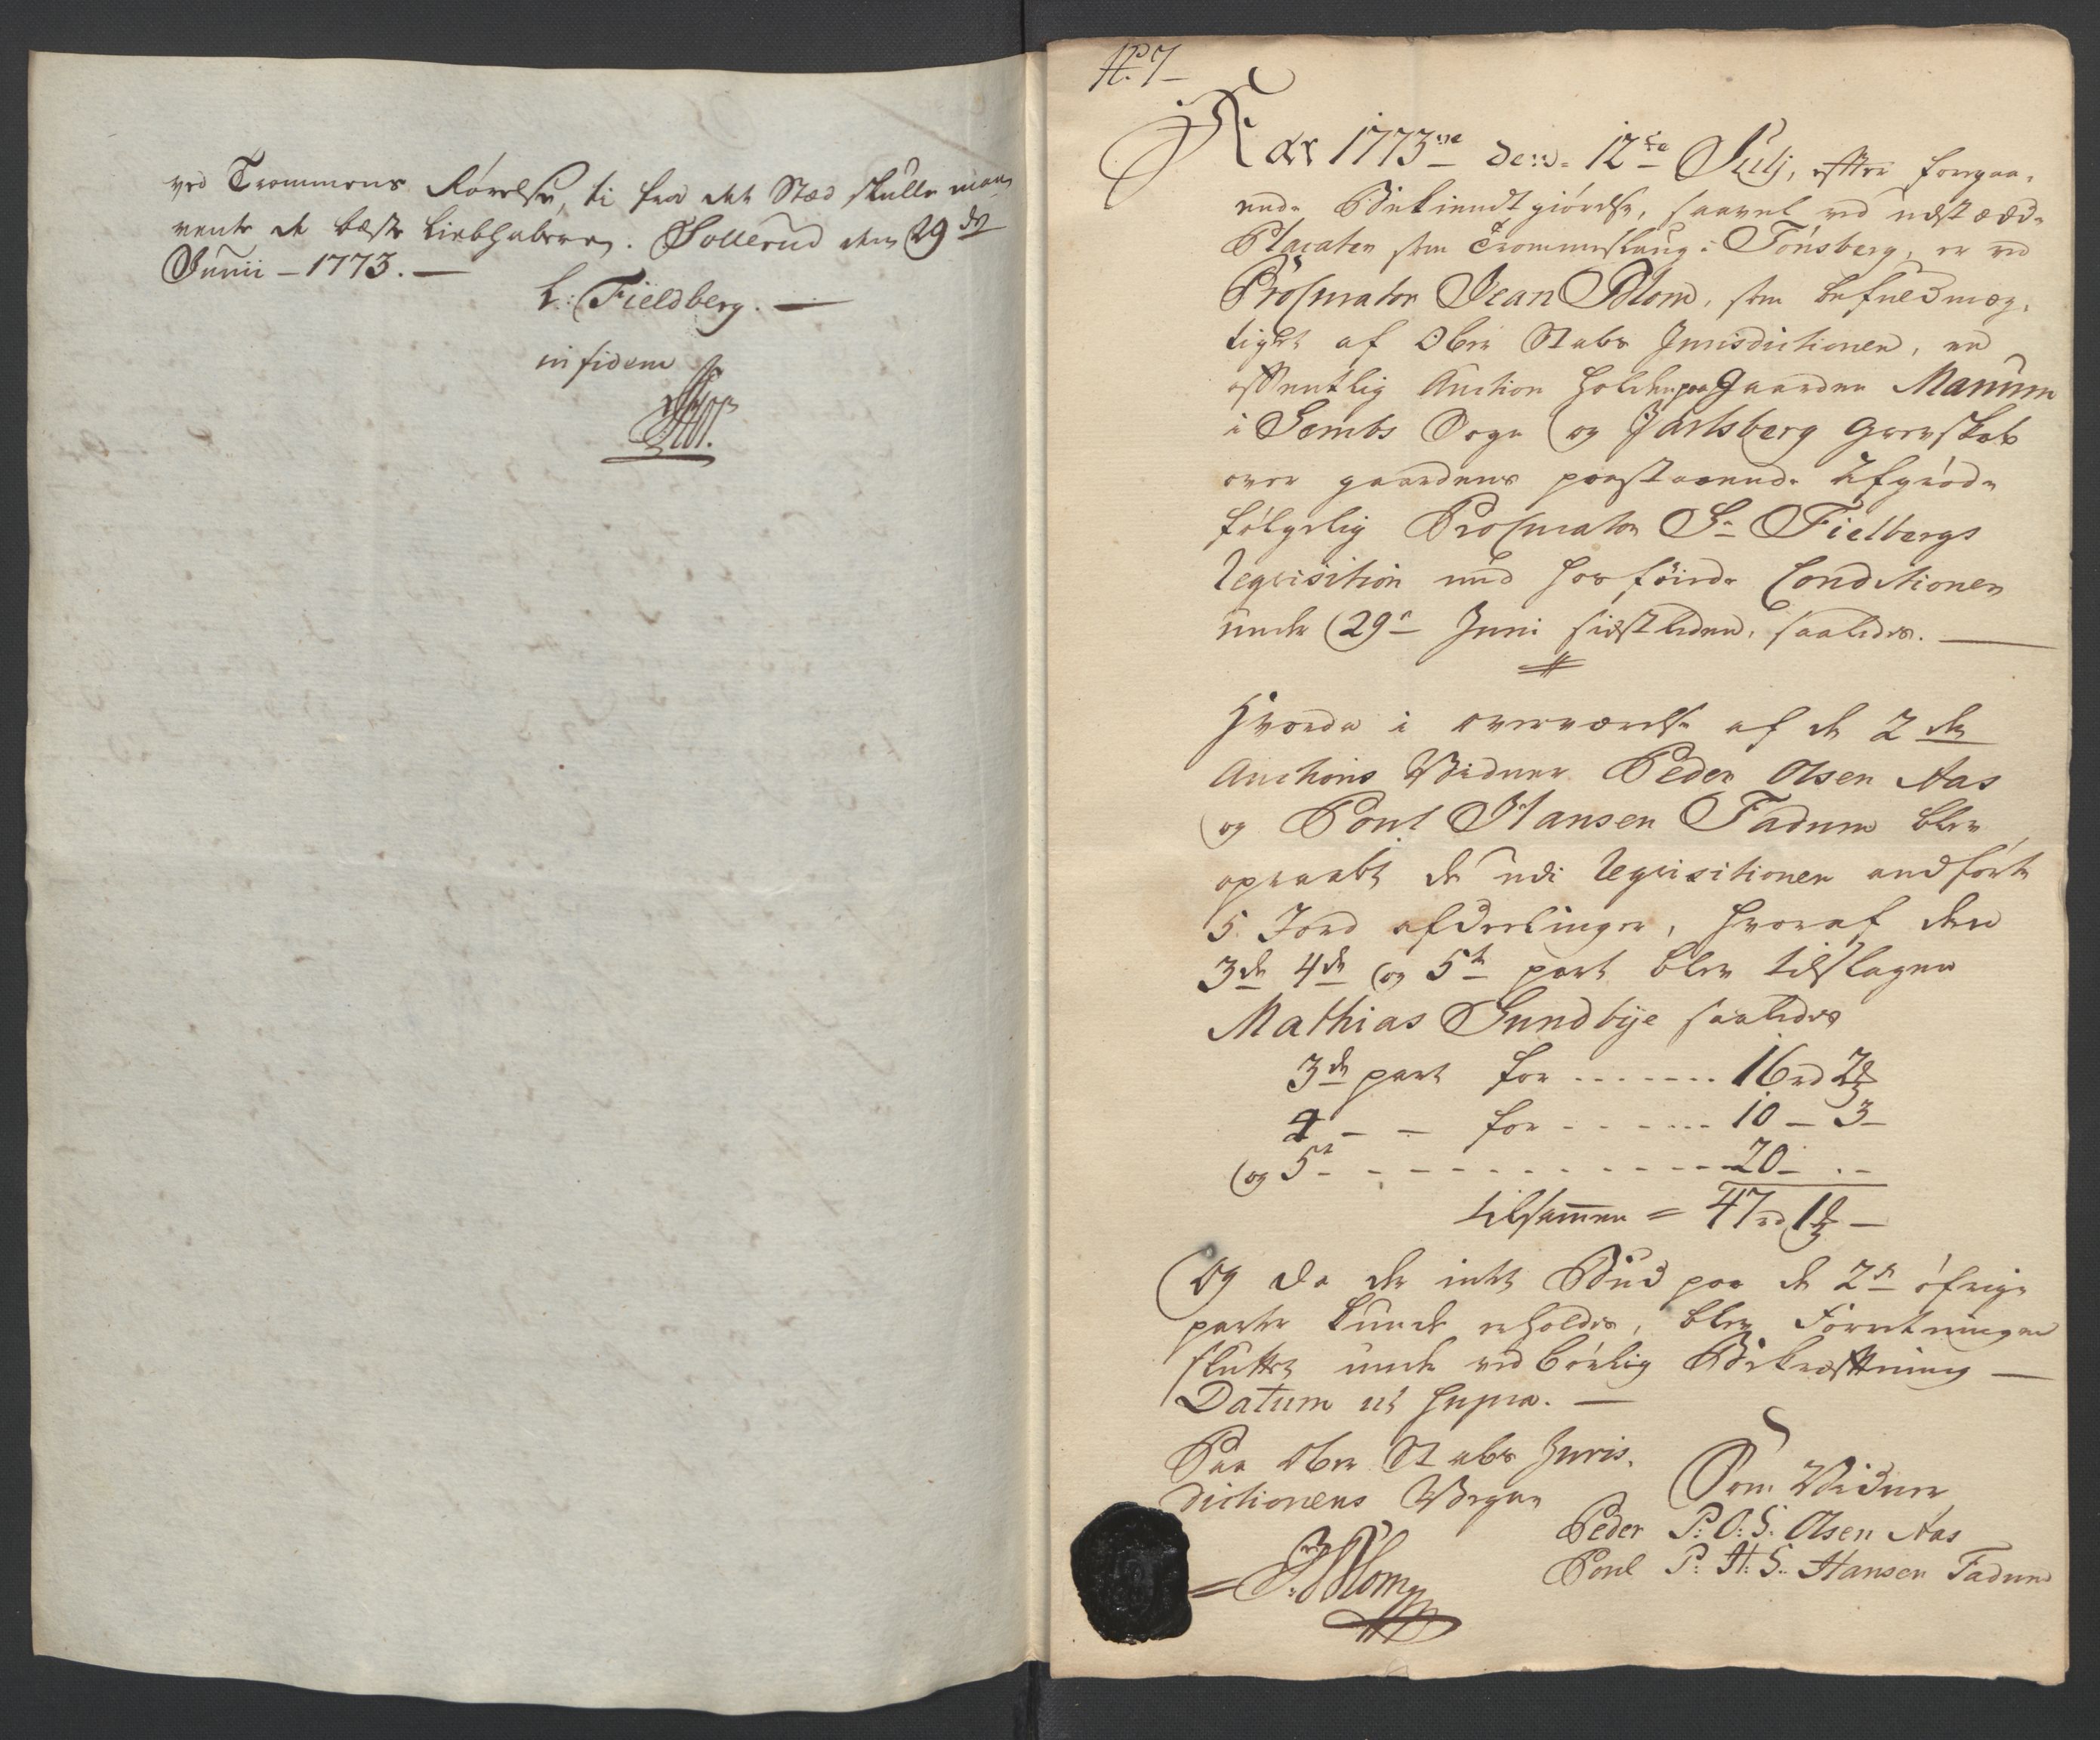 ved Trommens Rørelse, ti fra det Stæd skulle man
vente de bæste Liebhabere. Sollerud den 29de
Junii - 1773. -
L: Fieldberg. -
in fidem
No 7
Aar 1773ve den 12te Julij, efter foregaa-
ende Bekiendtgiørelse, saavel ved udstædde
Placater som Trommeslaug i Tønsberg, er ved
Procurator Jean Blom, som befuldmæg-
tiget af Ober Stabs Jurisdictionen, en
offentlig Auction holden paa Gaarden Manum
i Sembs Sogn og Jarlsberg Grevskab
over gaardens paastaaende Afgrøde
følgelig Procurator Sr Fielbergs
Reqvisition med hosføiede Conditioner
under 29e Juni sidstleden, saaledes. -
Hvorda i overværelse af de 2de
Auctions Vidner Peder Olsen Aas
og Poul Hansen Fadum blev
opraabt de udi Reqvisitionen andførte
5 Jord afdeelinger, hvoraf den
3de 4de og 5te part blev tilslagen
Mathias Gundbye saaledes
3de part for ....... 16 rd 2 ß
4 - - for - - - - ... 10 - 3 -
og 5te - - - - - - - - - - - 20 - . -
tilsammen = 47 rd 1 ß -
Og da der intet Bud paa de 2de øfrige
parter kunde erholdes, blev Forretningen
sluttet under vedbørlig Bekræftning -
Datum ut supra. -
Paa Ober Stabs Juris-
dictionens Vegne
JBlom
Som Vidner
Peder P: O: S. Olsen Aas
Poul P: H: S. Hansen Fadum